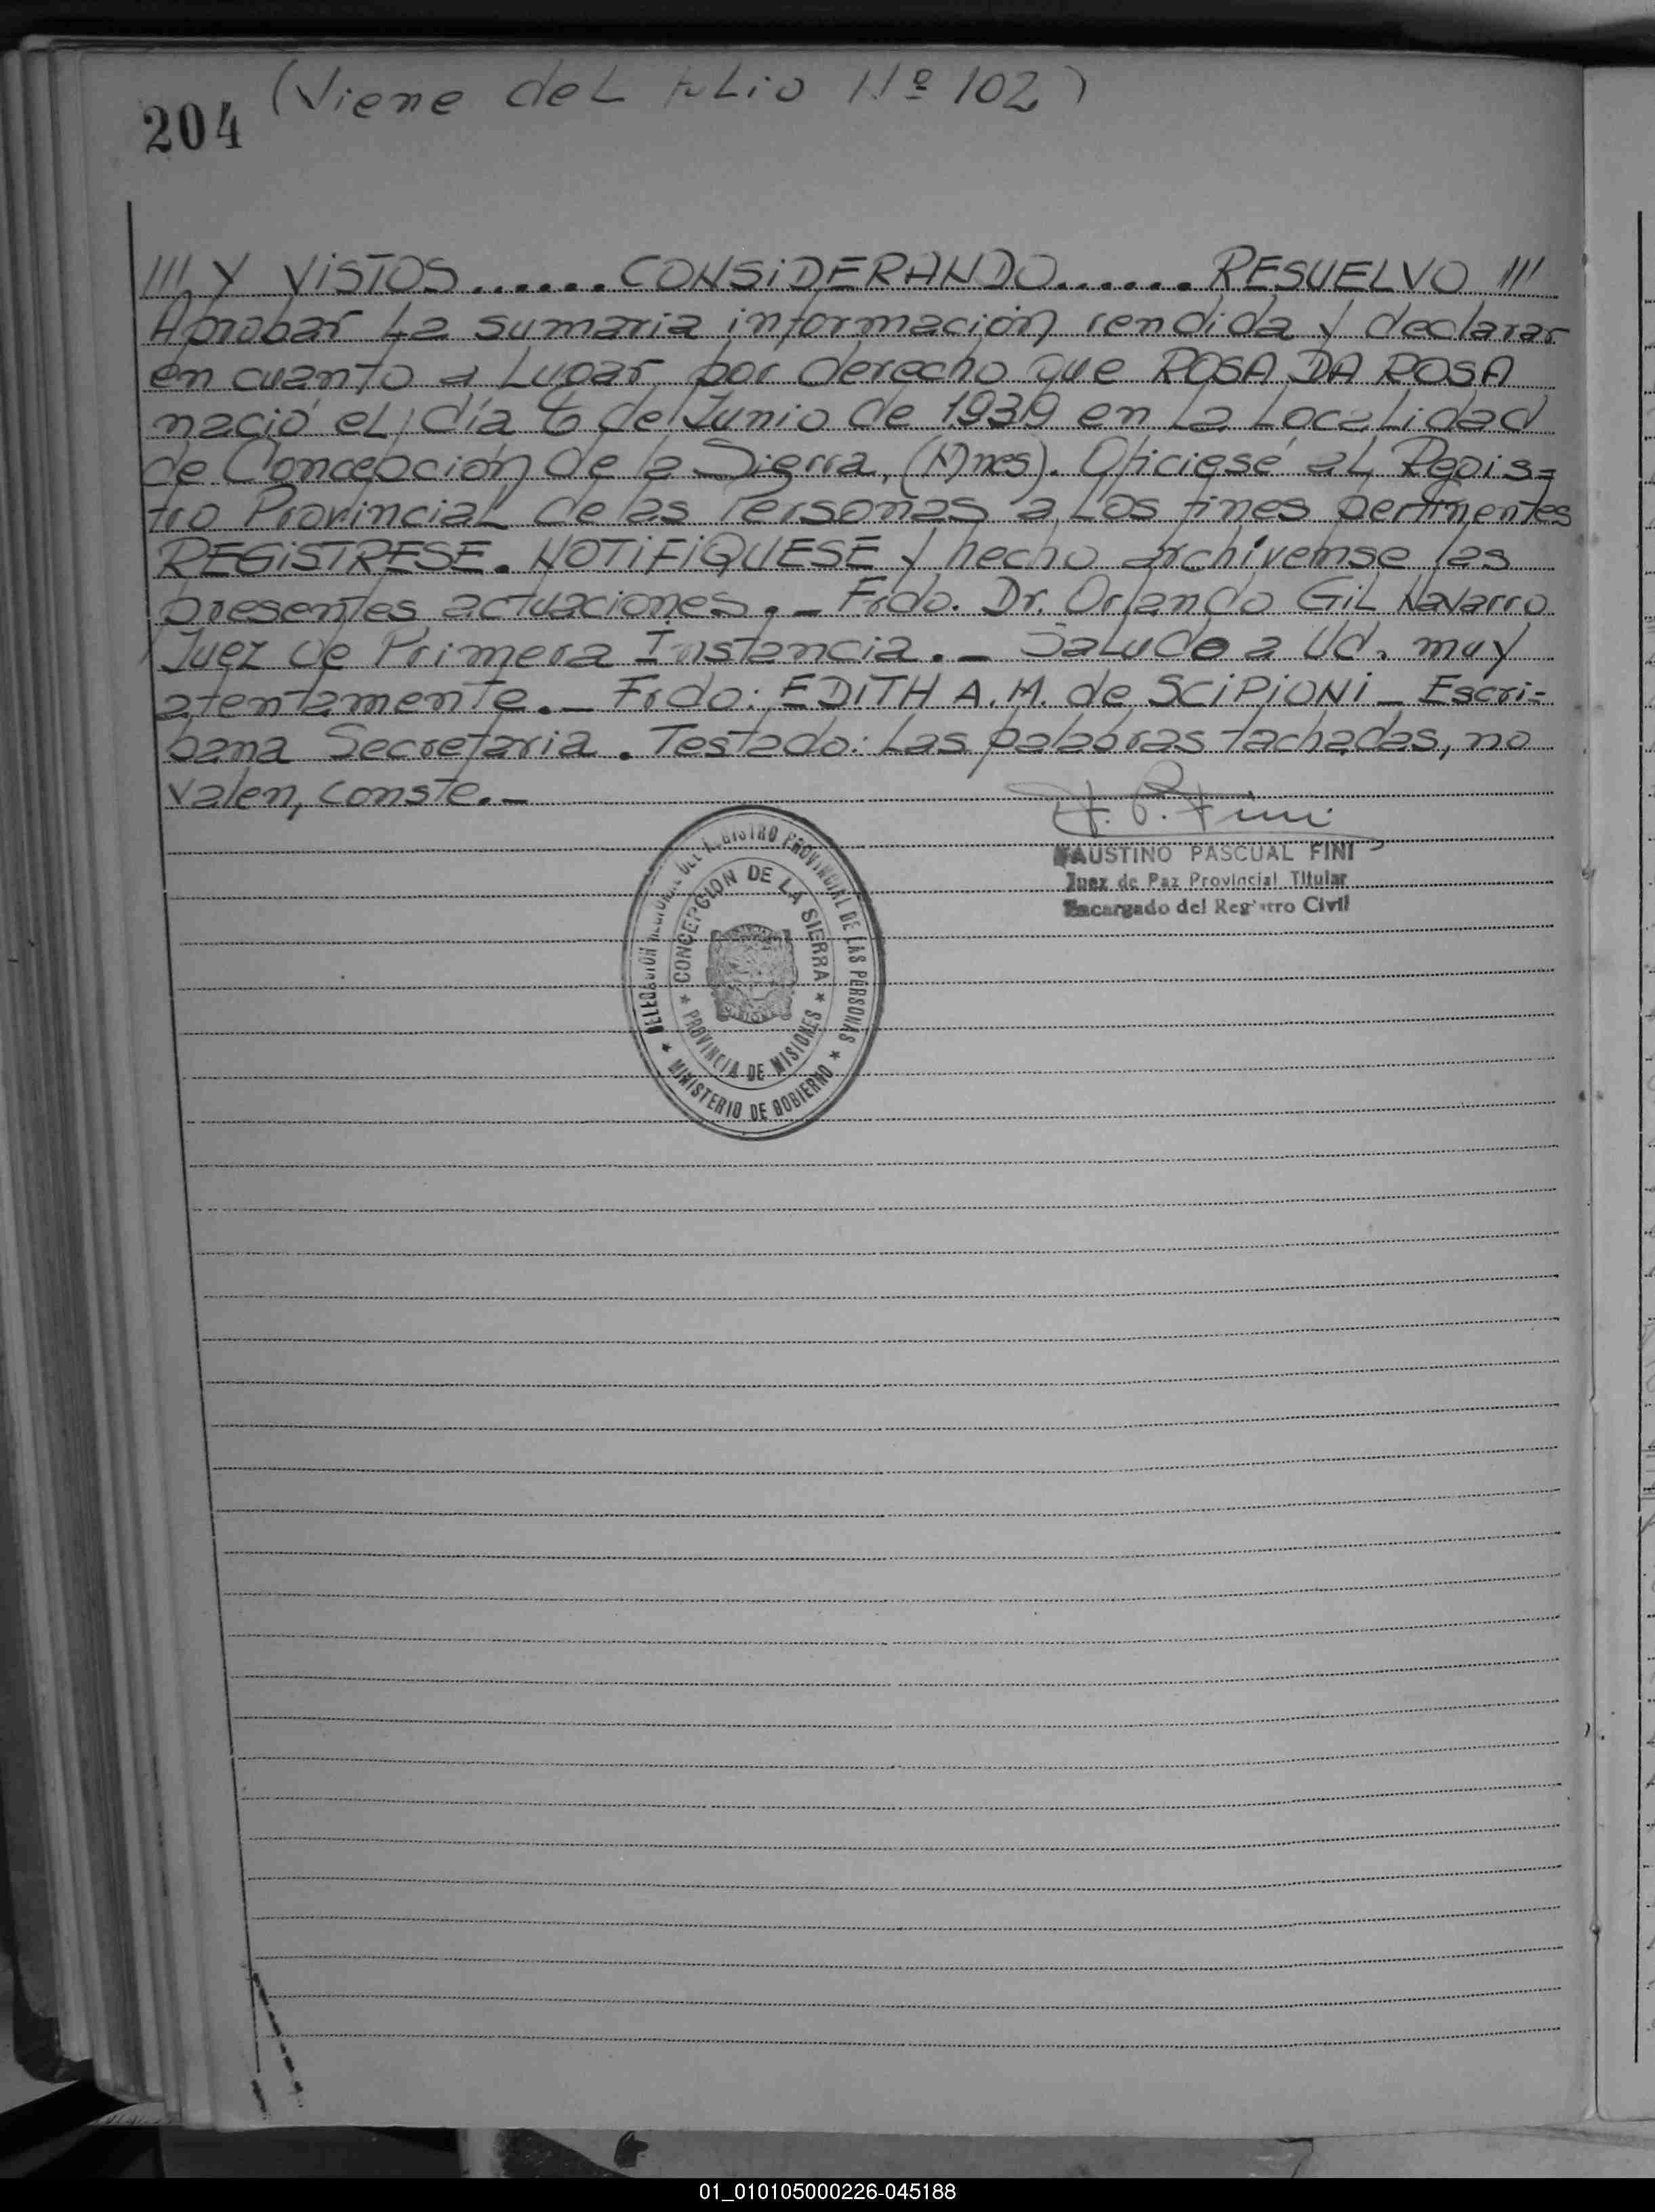 (Viene del folio Nº 102)
204
/// Y VISTOS...... CONSIDERANDO...... RESUELVO ///
Aprobar la sumaria información rendida y declarar
en cuanto a lugar por derecho que ROSA DA ROSA
nació el día 6 de Junio de 1939 en la Localidad
de Concepción de la Sierra, (Mnes). Oficiese al Regis=
tro Provincial de las Personas a los fines pertinentes
REGISTRESE. NOTIFIQUESE y hecho archivemse las
presentes actuaciones._ Frdo. Dr. Orlando Gil Navarro
Juez de Primera Instancia._ Saludo a Ud. muy
atentamente._ Frdo: EDITH A. M. de SCIPIONI _ Escri=
bana Secretaria. Testado: Las palabras tachadas, no
valen, conste._
F. P. Fini
FAUSTINO PASCUAL FINI
Juez de Paz Provincial Titular
Encargado del Registro Civil
DELEGACION REGIONAL DEL REGISTRO PROVINCIAL DE LAS PERSONAS
★ MINISTERIO DE GOBIERNO ★
CONCEPCION DE LA SIERRA
★ PROVINCIA DE MISIONES ★
01_010105000226-045188